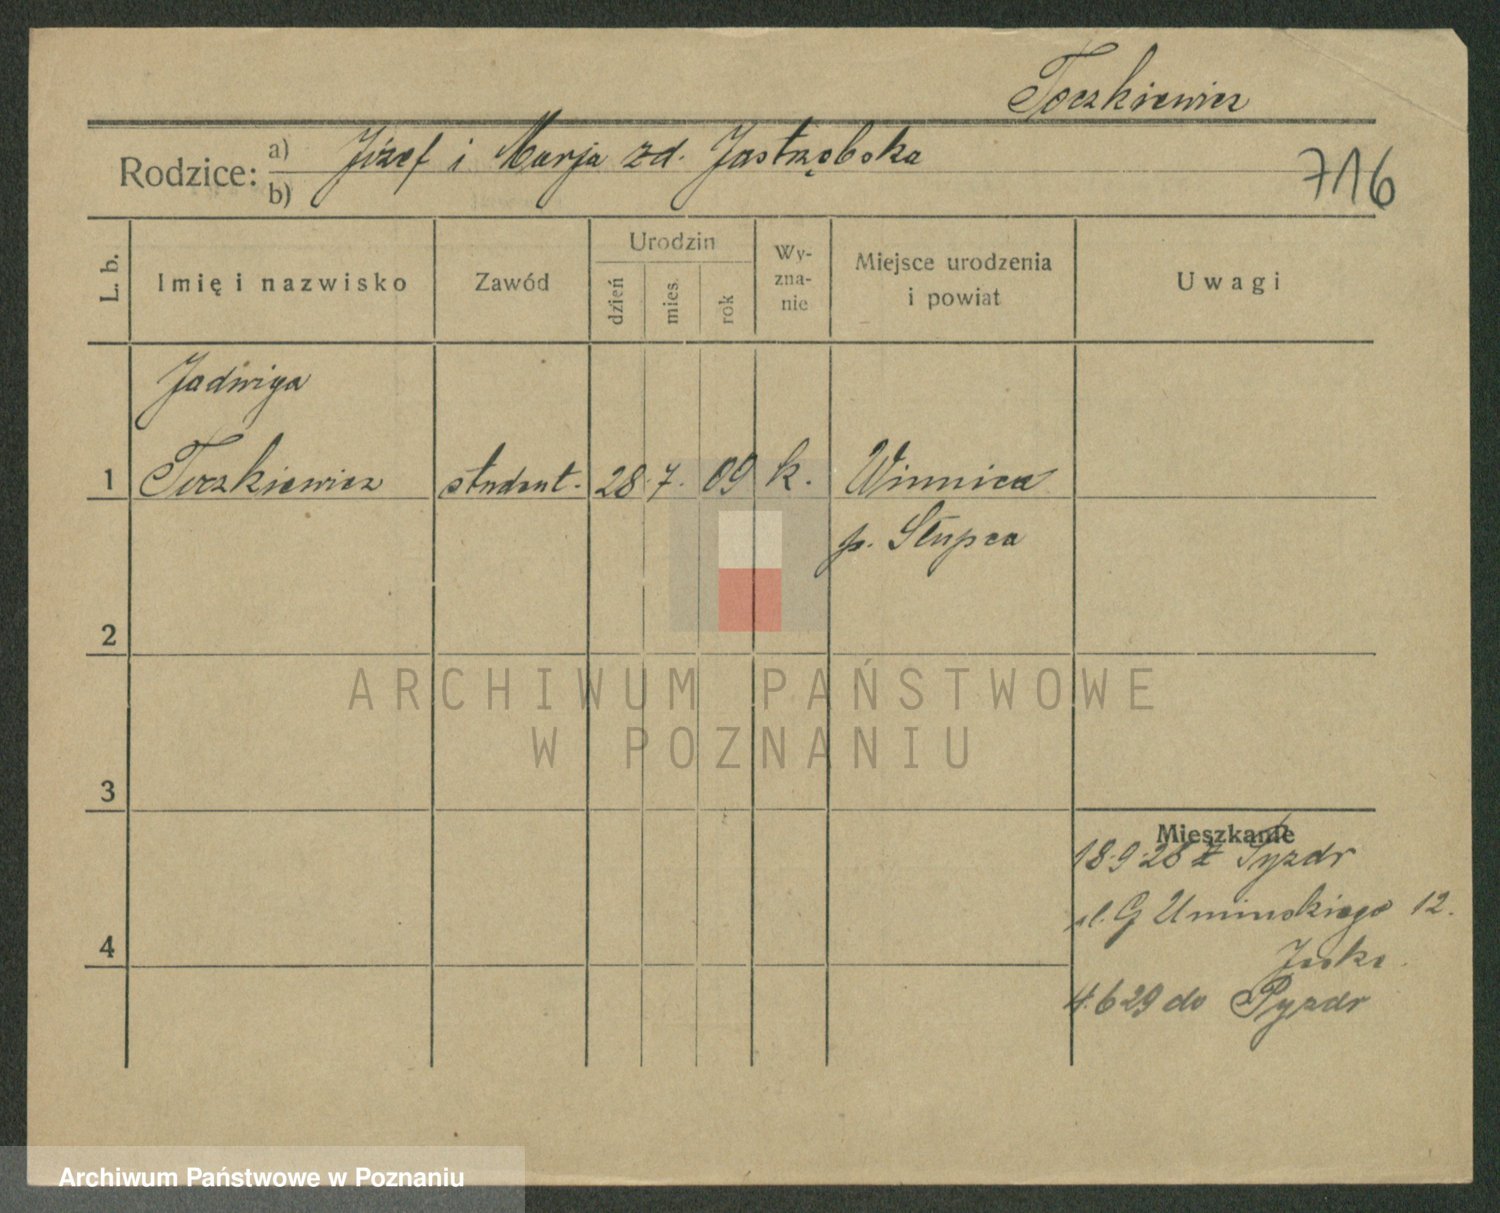 Toczkiewicz
Rodzice: a) Józef i Marja zd. Jastrzębska
b)
716
L. b.
Imię i nazwisko
Zawód
Urodzin
dzień
mies.
rok
Wy-
zna-
nie
Miejsce urodzenia
i powiat
Uwagi
Jadwiga
1 Toczkiewicz student. 28. 7. 09 k. Winnica
p. Słupca
2
ARCHIWUM PAŃSTWOWE
W POZNANIU
3
Mieszkanie
18.9.28 z Pyzdr
ul. G Umińskiego 12.
4
4.6 29 do Pyzdr
Archiwum Państwowe w Poznaniu